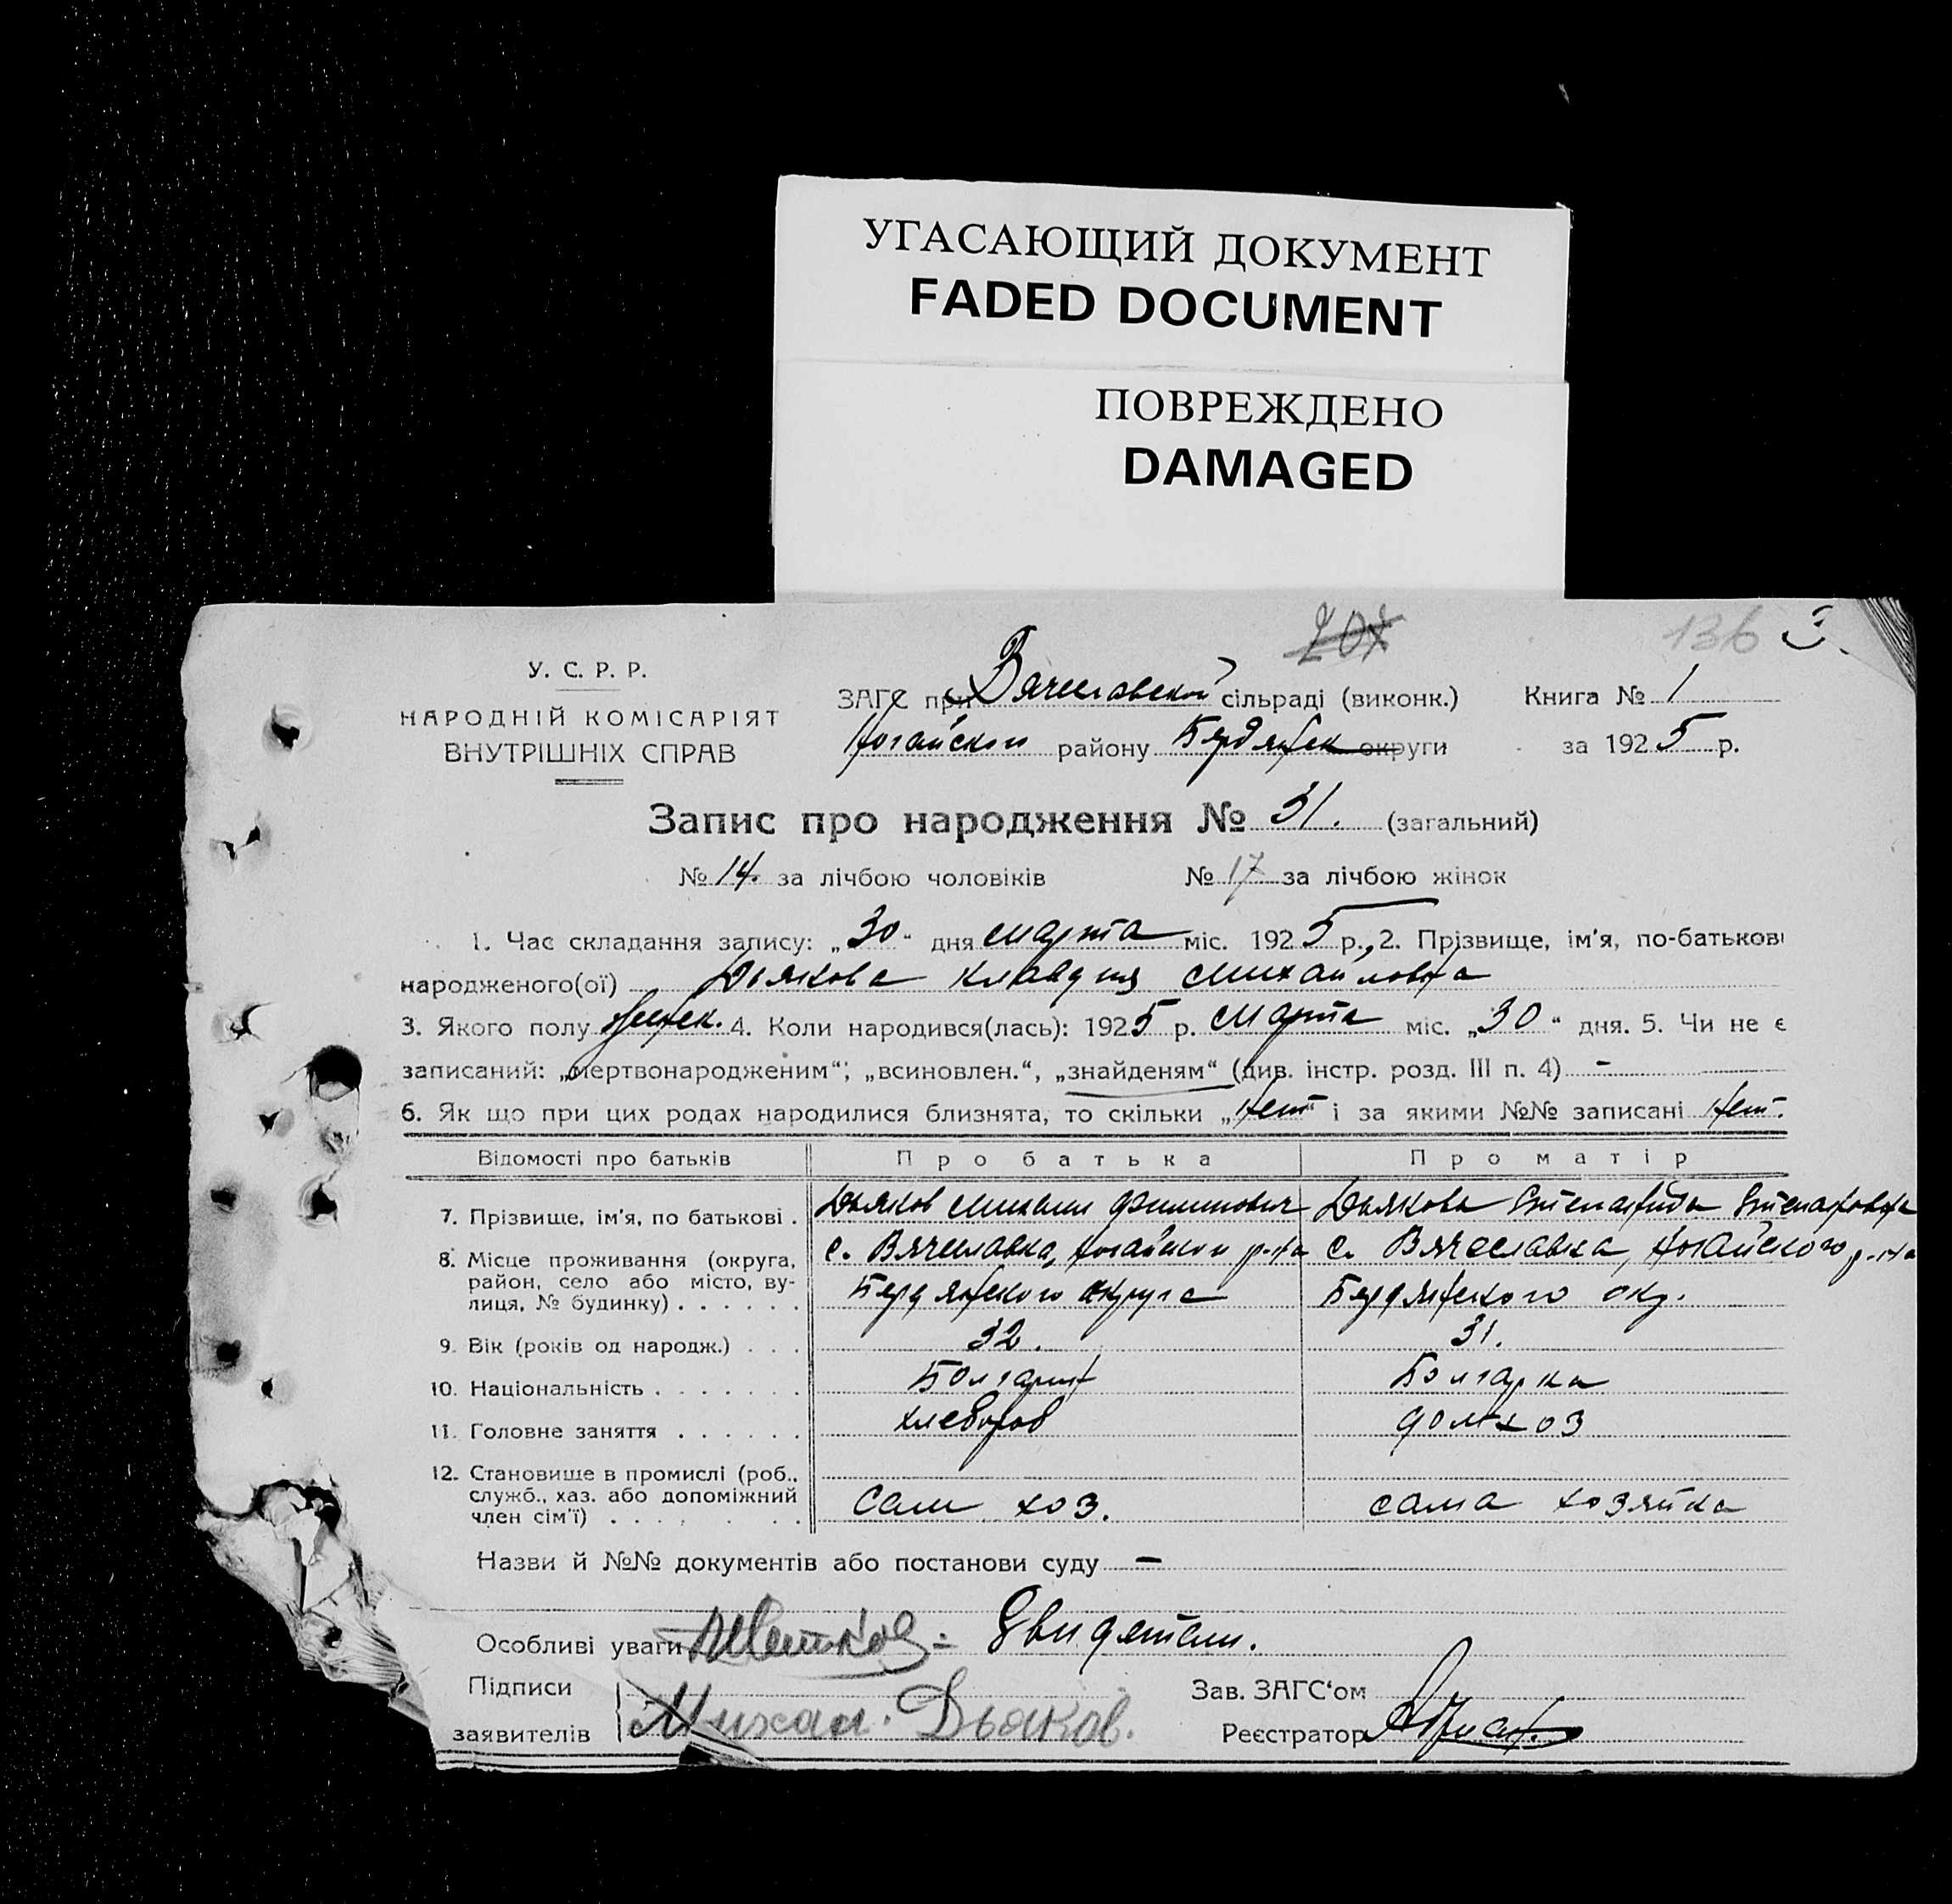 УГАСАЮЩИЙ ДОКУМЕНТ
FADED DOCUMENT
ПОВРЕЖДЕНО
DAMAGED
207 136
У. С. Р. Р.
НАРОДНІЙ КОМІСАРІЯТ
ВНУТРІШНІХ СПРАВ
ЗАГС при Вячеславской сільраді (виконк.) Книга № 1
Ногайского району Бердянск округи за 1925 р.
Запис про народження № 31. (загальний)
№ 14. за лічбою чоловіків № 17 за лічбою жінок
1. Час складання запису: „30“ дня марта міс. 1925 р., 2. Прізвище, ім'я, по-батькові
народженого(ої) Дьякова Клавдия Михайловна
3. Якого полу женск. 4. Коли народився(лась): 1925 р. марта міс. „30“ дня. 5. Чи не є
записаний: „мертвонародженим“; „всиновлен.“, „знайденям“ (див. інстр. розд. III п. 4) -
6. Як що при цих родах народилися близнята, то скільки „нет“ і за якими №№ записані нет.
Відомості про батьків Про батька Про матір
7. Прізвище, ім'я, по батькові . Дьяков Михаил Филиппович Дьякова Степанида Степановна
8. Місце проживання (округа, с. Вячеславка, Ногайского р-на с. Вячеславка, Ногайского р-на
район, село або місто, ву-
лиця, № будинку) . . . . . . Бердянского округа Бердянского окр.
9. Вік (років од народж.) . . . 32. 31.
10. Національність . . . . . . . Болгарин Болгарка
11. Головне заняття . . . . . . хлебороб домхоз
12. Становище в промислі (роб.,
служб., хаз. або допоміжний
член сім'ї) . . . . . . . . Сам хоз. сама хозяйка
Назви й №№ документів або постанови суду —
Особливі уваги
Підписи Зав. ЗАГС‘ом
заявителів Михаил. Дьяков. Реєстратор